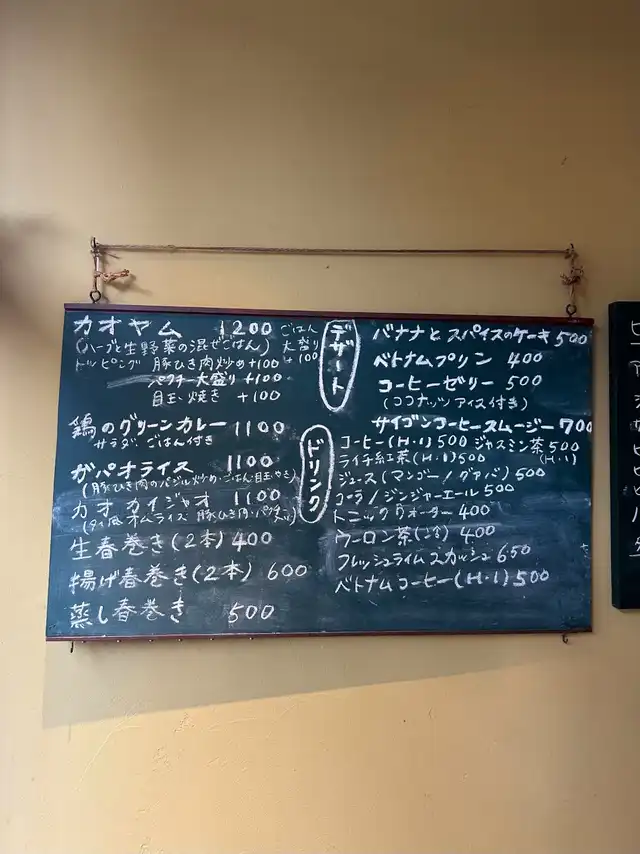 カオヤム 1200 ごはん大盛り+100
(ハーブと生野菜の混ぜごはん)
トッピング 豚ひき肉炒め+100
パクチー大盛り+100
目玉焼き +100
鶏のグリーンカレー 1100
サラダ、ごはん付き
ガパオライス 1100
(豚ひき肉のバジル炒め・ごはん・目玉やき)
カオカイジャオ 1100
(タイ風オムライス 豚ひき肉・パクチー)
生春巻き(2本) 400
揚げ春巻き(2本) 600
蒸し春巻き 500
デザート
バナナとスパイスのケーキ 500
ベトナムプリン 400
コーヒーゼリー 500
(ココナッツアイス付き)
サイゴンコーヒースムージー 700
ドリンク
コーヒー(H・I) 500 ジャスミン茶 500
ライチ紅茶(H・I) 500 (H・I)
ジュース(マンゴー/グァバ) 500
コーラ/ジンジャーエール 500
トニックウォーター 400
ウーロン茶(冷) 400
フレッシュライムスカッシュ 650
ベトナムコーヒー(H・I) 500